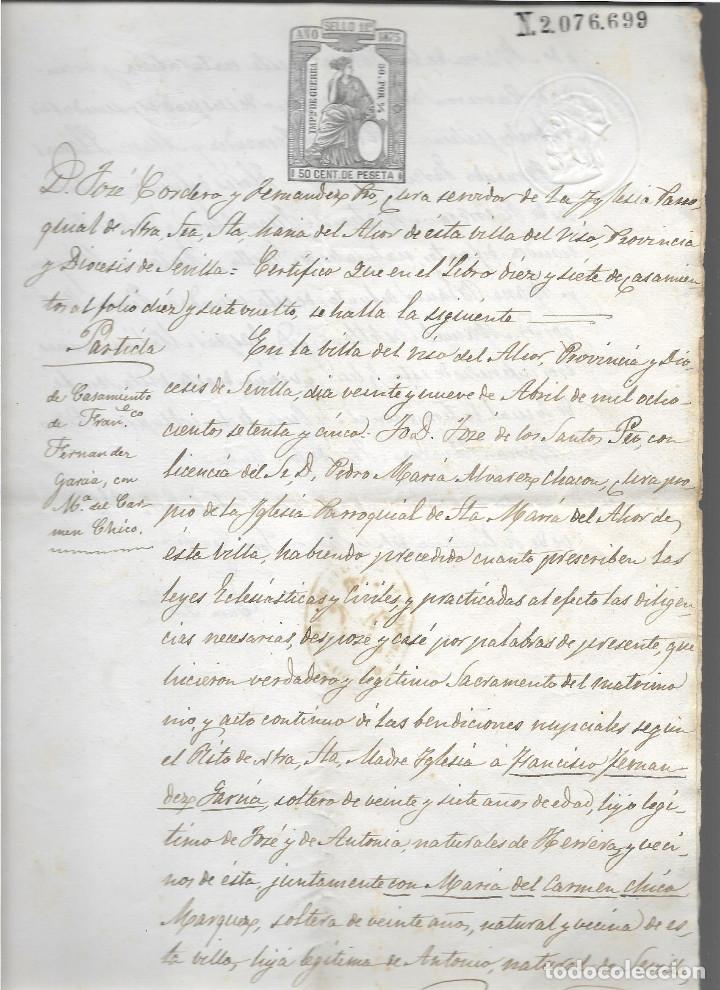 Y.2.076.699
SELLO 11º
AÑO 1875
IMPTO DE GUERRA
50 POR %
50 CENT. DE PESETA
D. José Cordero y Fernandez Pro, Cura servidor de la Yglesia Parro,
quial de Ntra, Sra, Sta, Maria del Alcor de ésta villa del Viso, Provincia
y Diócesis de Sevilla = Certifico que en el Libro diéz y siéte de Casamien
tos al folio diéz y siete vuelto, se halla la siguiente
Partida
de Casamiento
de Franco
Fernandez
Garcia, con
Ma. del Car-
men Chico.
En la villa del Viso del Alcor, Provincia y Dió-
cesis de Sevilla, dia veinte y nueve de Abril de mil ocho-
cientos setenta y cinco. Yo D. José de los Santos Pro, con
licencia del Sr, D, Pedro Maria Alvarez Chacon, Cura pro
pio de la Yglesia Parroquial de Sta Maria del Alcor de
ésta villa, habiendo precedido cuanto prescriben las
leyes Eclesiásticas y Civiles, y practicadas al efecto las diligen
cias necesarias, desposé y casé por palabras de presente, que
hicieron verdadero y legítimo Sacramento del matrimo
nio, y acto contínuo dí las bendiciones nupciales según
el Rito de Ntra, Sta, Madre Yglesia á Francisco Fernan
dez Garcia, soltero de veinte y siete años de edad, hijo legí-
timo de José y de Antonia, naturales de Herrera, y veci-
nos de ésta, juntamente con Maria del Carmen Chico
Marquez, soltera de veinte años, natural y vecina de es
ta villa, hija legítima de Antonio, natural de Sevilla,
todocoleccion